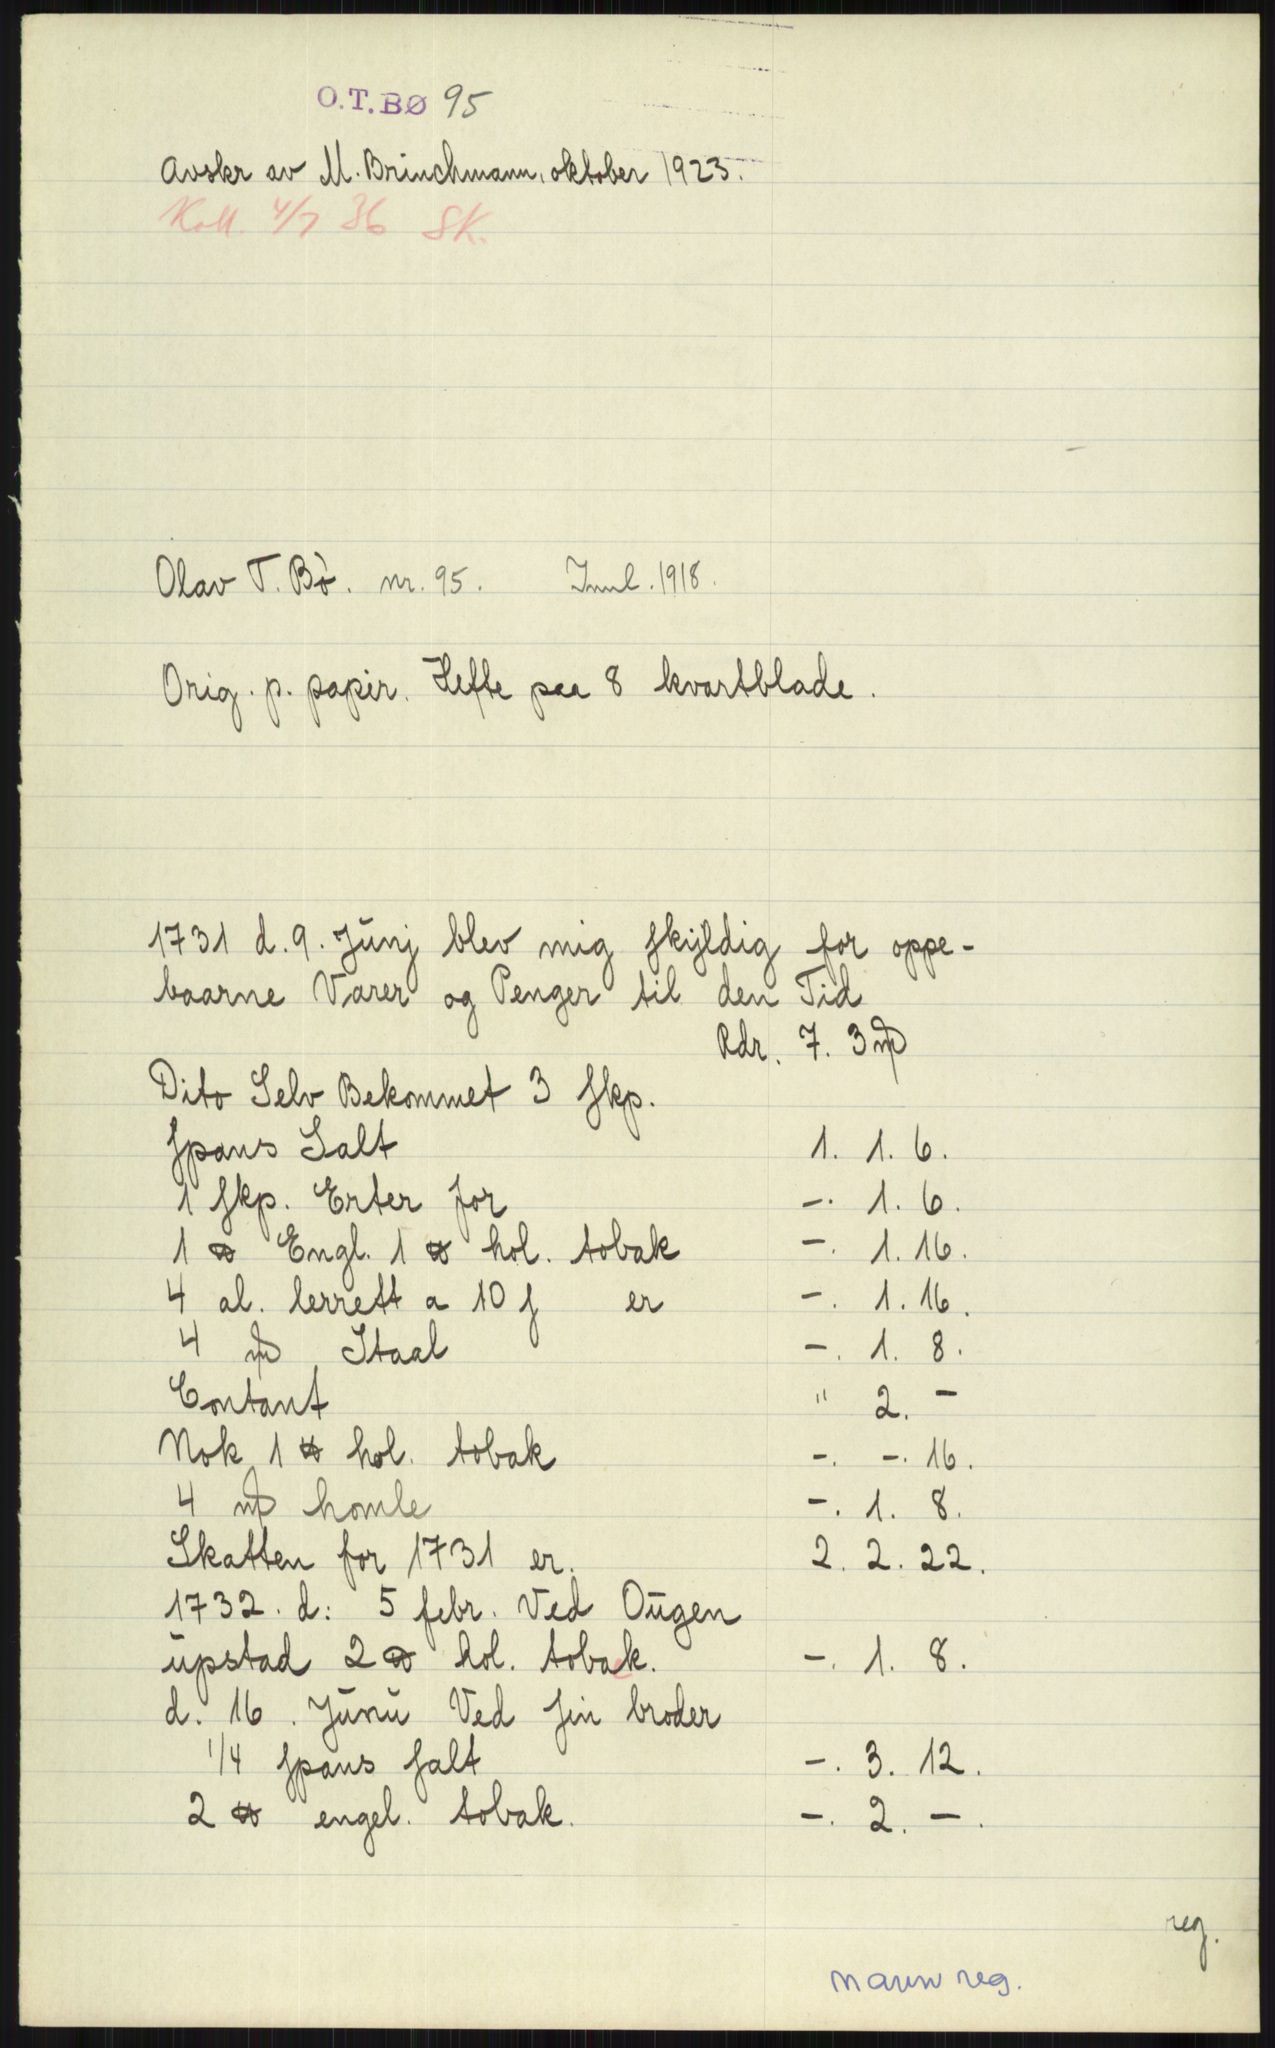 O.T.BØ 95
Avskr av M. Brinchmann, oktober 1923.
Koll. 4/7 36 SK.
Olav T. Bø. nr. 95. Innl. 1918.
Orig. p. papir. Hefte paa 8 kvartblade.
1731 d. 9. Jŭnj blev mig skÿldig for oppe-
baarne Varer og Penger til den Tid
Rdr. 7. 3 ♏
Dito Selv Bekommet 3 skp.
spans Salt 1. 1. 6.
1 skp. Erter for -. 1. 6.
1 ℔ Engl. 1 ℔ hol. tobak -. 1. 16.
4 al. lerrett a 10 s er -. 1. 16.
4 ♏ Staal -. 1. 8.
Contant " 2. -
Nok 1 ℔ hol. tobak -. -. 16.
4 ♏ homle -. 1. 8.
Skatten for 1731 er. 2. 2. 22.
1732. d: 5 febr. Ved Oŭgen
ŭpstad 2 ℔ hol. tobak. -. 1. 8.
d. 16. Jŭnŭ Ved sin broder
1/4 spans salt -. 3. 12.
2 ℔ engel. tobak. -. 2. -.
reg.
navn reg.